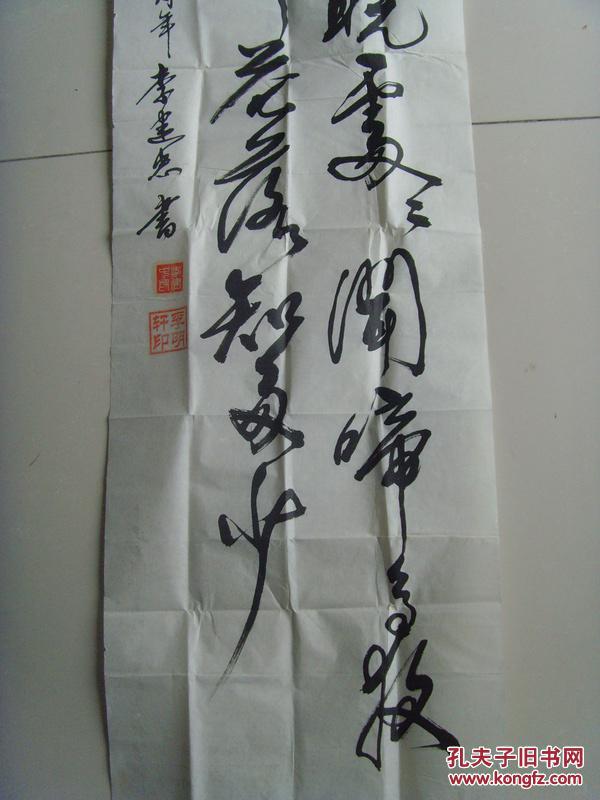 晓處々闻啼鸟夜
花落知多少
年 李建忠 书
李明
轩印
孔夫子旧书网
www.kongfz.com